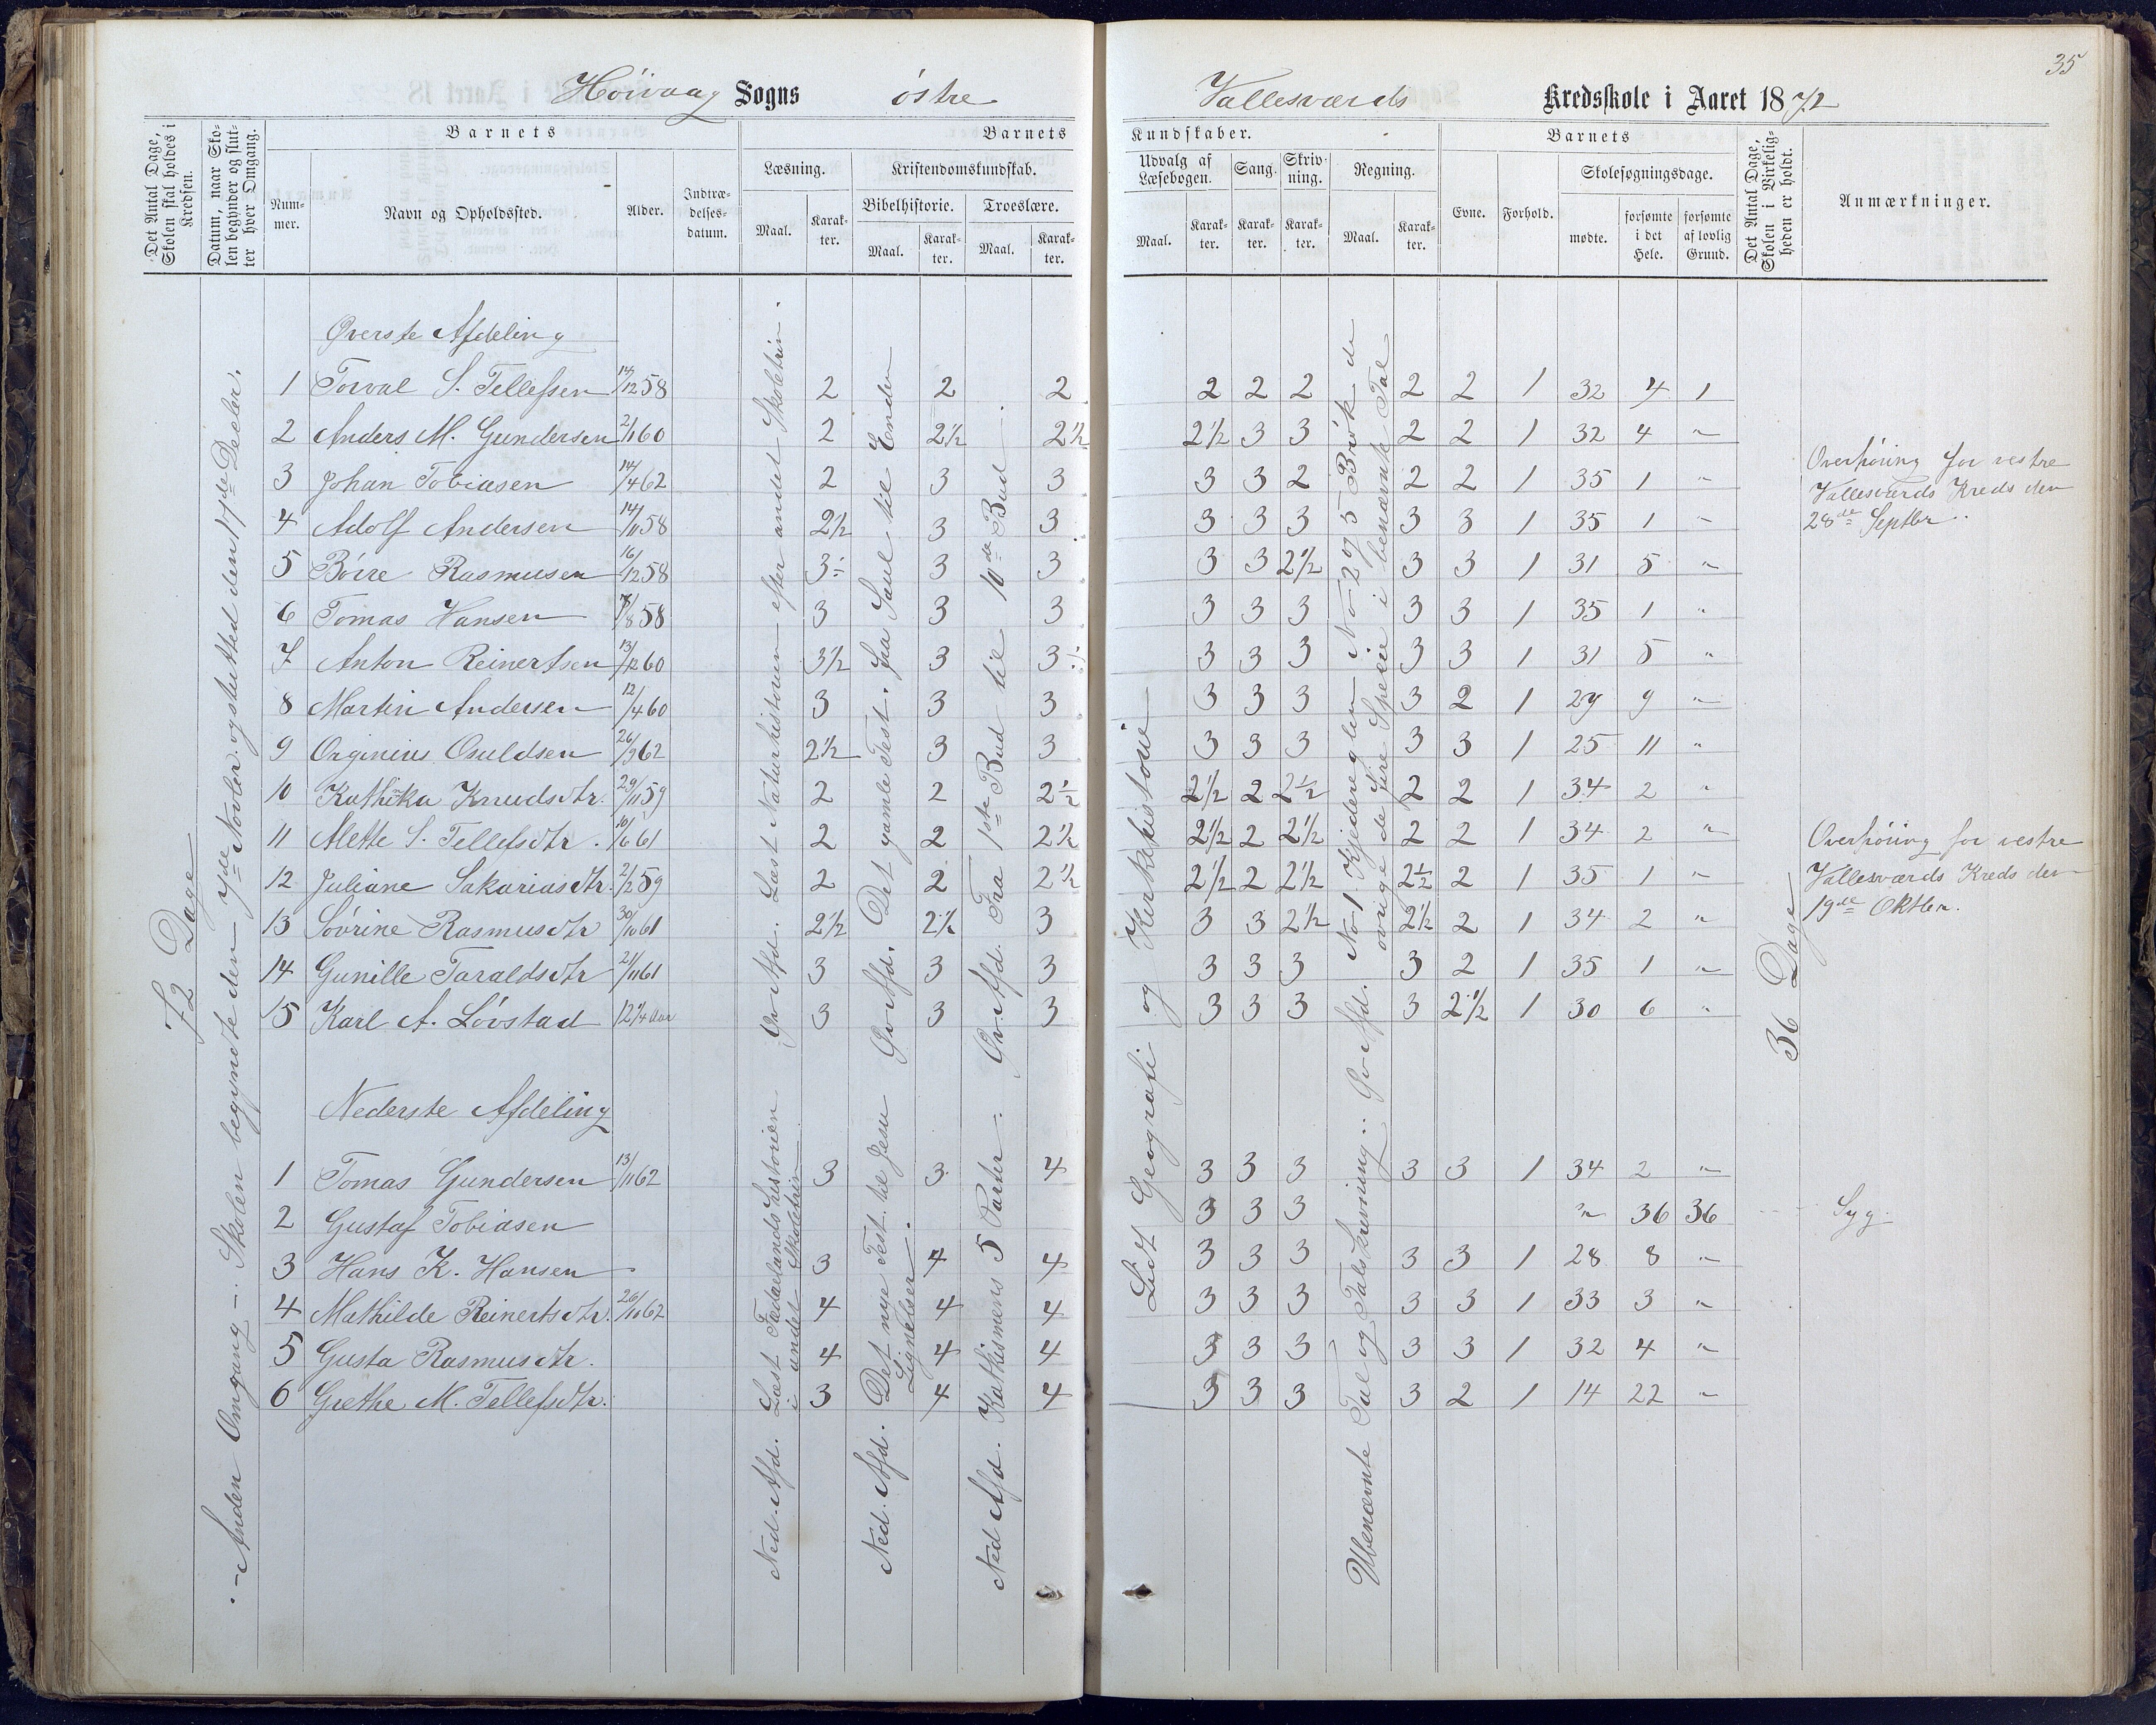 35
Høivaag Sogns østre Vallesværds Kredsskole i Aaret 1872
Det Antal Dage, Skolen skal holdes i Kredsen.
Datum, naar Skolen begynder og slutter hver Omgang.
Barnets
Nummer.
Navn og Opholdssted.
Alder.
Indtrædelsesdatum.
Barnets Kundskaber.
Læsning.
Maal.
Karakter.
Kristendomskundskab.
Bibelhistorie.
Maal.
Karakter.
Troeslære.
Maal.
Karakter.
Udvalg af Læsebogen.
Maal.
Karakter.
Sang.
Karakter.
Skrivning.
Karakter.
Regning.
Maal.
Karakter.
Barnets
Evne.
Forhold.
Skolesøgningsdage.
mødte.
forsømte i det Hele.
forsømte af lovlig Grund.
Det Antal Dage, Skolen i Virkeligheden er holdt.
Anmærkninger.
72 Dage
Anden Omgang – Skolen begyndte den 7de Novbr. og slutted den 17de Decbr.
Øverste Afdeling
1 Torval S. Tellefsen 14/12 58 2 2 2 2 2 2 2 2 1 32 4 1
2 Anders M. Gundersen 2/11 60 2 2½ 2½ 2½ 3 3 2 2 1 32 4 "
3 Johan Tobiasen 14/4 62 2 3 3 3 3 2 2 2 1 35 1 "
4 Adolf Andersen 14/11 58 2½ 3 3 3 3 3 3 3 1 35 1 "
5 Børe Rasmusen 16/12 58 3÷ 3 3 3 3 2½ 3 3 1 31 5 "
6 Tomas Hansen /8 58 3 3 3 3 3 3 3 3 1 35 1 "
7 Anton Reinertsen 13/12 60 3½ 3 3÷ 3 3 3 3 3 1 31 5 "
8 Martin Andersen 12/4 60 3 3 3 3 3 3 3 2 1 29 9 "
9 Orginius Osuldsen 26/9 62 2½ 3 3 3 3 3 3 3 1 25 11 "
10 Kathinka Knudsdtr. 29/11 59 2 2 2½ 2½ 2 2½ 2 2 1 34 2 "
11 Alette S. Tellefsdtr. 10/6 61 2 2 2½ 2½ 2 2½ 2 2 1 34 2 "
12 Juliane Sakariasdtr. 2/2 59 2 2 2½ 2½ 2 2½ 2½ 2 1 35 1 "
13 Sovrine Rasmusdtr 30/10 61 2½ 2½ 3 3 3 2½ 2½ 2 1 34 2 "
14 Gunille Taraldsdtr 21/11 61 3 3 3 3 3 3 3 2 1 35 1 "
15 Karl A. Lovstad 12¼ Aar 3 3 3 3 3 3 3 2½ 1 30 6 "
Nederste Afdeling
1 Tomas Gundersen 13/11 62 3 3 4 3 3 3 3 3 1 34 2 "
2 Gustaf Tobiasen 3 3 3 " 36 36 Syg
3 Hans K. Hansen 3 4 4 3 3 3 3 3 1 28 8 "
4 Mathilde Reinertsdtr. 26/10 62 4 4 4 3 3 3 3 3 1 33 3 "
5 Gusta Rasmusdtr. 4 4 4 3 3 3 3 3 1 32 4 "
6 Grethe M. Tellefsdtr. 3 4 4 3 3 3 3 2 1 14 22 "
Øv. Afd. Læst Naturhistorien efter andet Skoletrin.
Ned. Afd. Læst Fædrelandshistorien
i andet Skoletrin
Øv. Afd. Det gamle Test. fra Saul til Enden
Ned. Afd. Det nye Test. til Jesu
Lignelser.
Øv. Afd. Fra 1ste Bud til 10de Bud
Ned Afd. Kathismens 5 Parter.
Lidt Geografi og Kirkehistorie
Øv. Afd. No 1 Kjedereglen No 2 og 5 Brøk de
øvrige de fire Specie i benævnte Tal
Ubenævnte Tal og Talskrivning.
36 Dage
Overhøring for vestre
Vallesværds Kreds den
28de Septbr.
Overhøring for vestre
Vallesværds Kreds den
19de Oktbr.